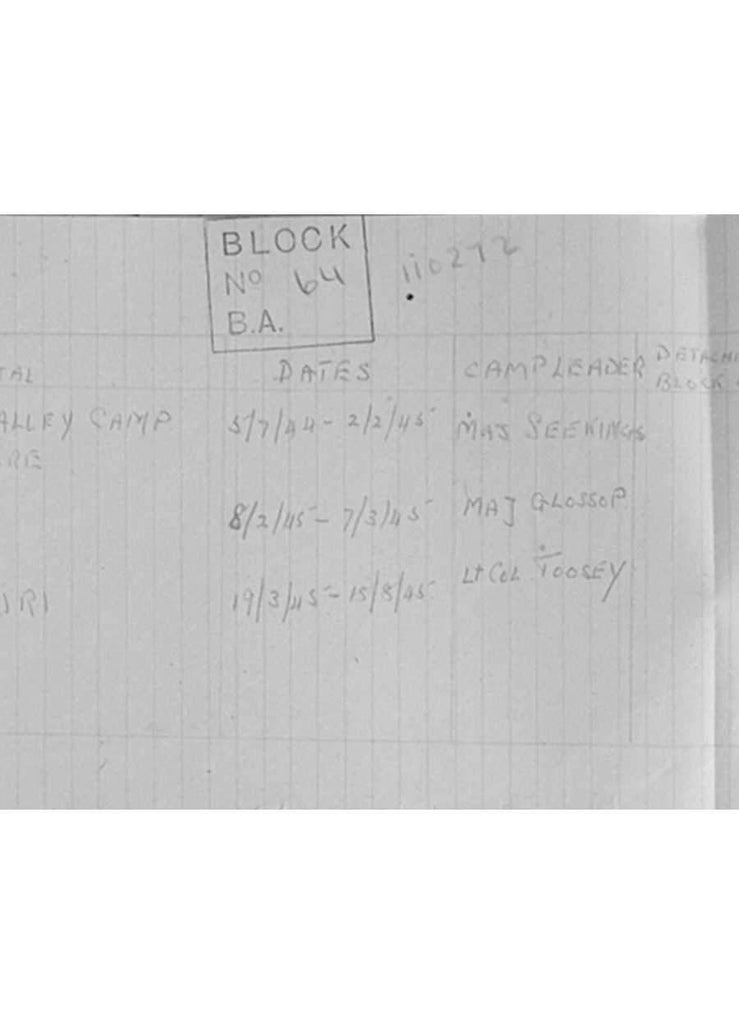 BLOCK
No 64
B.A.
110272
TAL DATES CAMP LEADER DETACH
BLOCK
ALLEY CAMP 5/7/44 - 2/2/45 MAJ SEEKINGS
RE
8/2/45 - 7/3/45 MAJ GLOSSOP
IRI 19/3/45 - 15/8/45 Lt Col TOOSEY